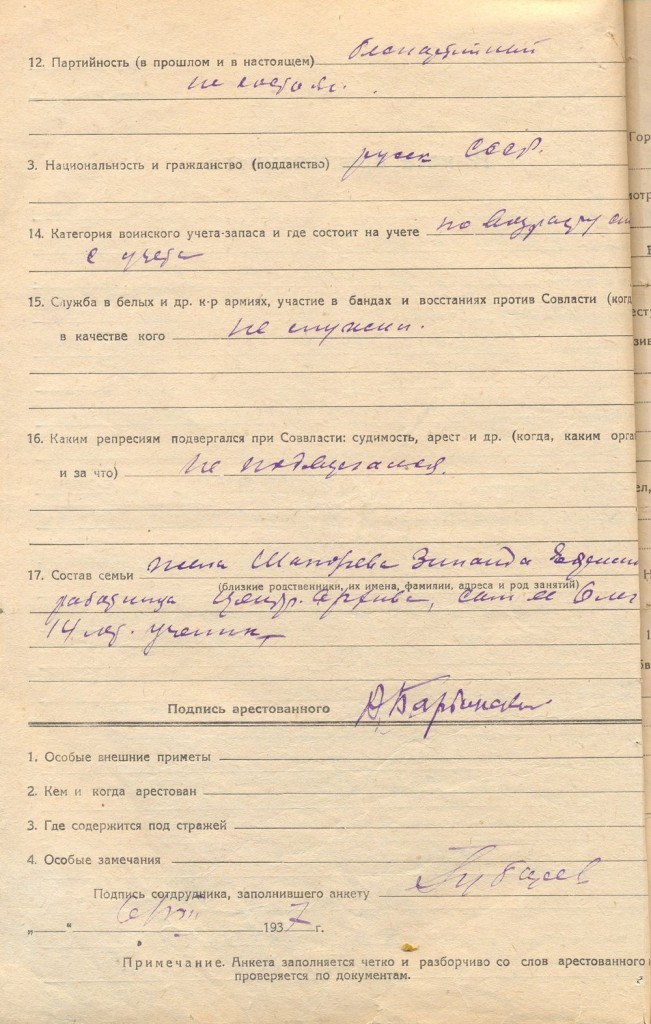 12. Партийность (в прошлом и в настоящем) беспартийный
не состоял.
3. Национальность и гражданство (подданство) русск СССР.
14. Категория воинского учета-запаса и где состоит на учете по возрасту сн
с учета
15. Служба в белых и др. к-р армиях, участие в бандах и восстаниях против Совласти (ког
в качестве кого не служил.
16. Каким репресиям подвергался при Соввласти: судимость, арест и др. (когда, каким орга
и за что) не подвергался.
17. Состав семьи жена Зинаида
(близкие родственники, их имена, фамилии, адреса и род занятий)
работница Центр. Архива, сын ее Олег
14 лет. ученик
Подпись арестованного
1. Особые внешние приметы
2. Кем и когда арестован
3. Где содержится под стражей
4. Особые замечания
Подпись сотрудника, заполнившего анкету
„ “ 1937 г.
Примечание. Анкета заполняется четко и разборчиво со слов арестованного
проверяется по документам.